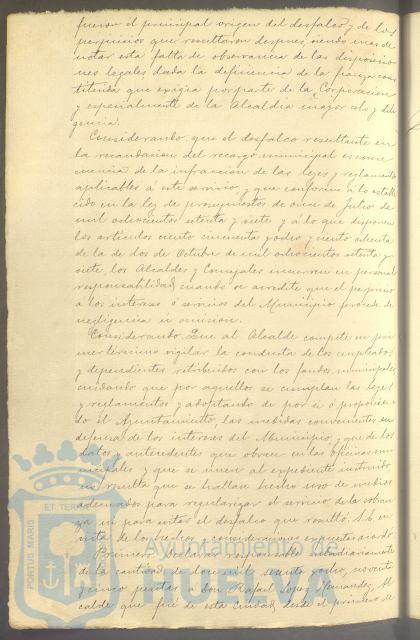 fueron el principal origen del desfalco y de los
perjuicios que resultaron despues, siendo mas de
notar esta falta de observancia de las disposicio
nes legales dada la deficiencia de la fianza cons
tituida que exigia por parte de la Corporacion
y especialmente de la Alcaldia mayor celo y dili
gencia.
Considerando que el desfalco resultante en
la recaudacion del recargo municipal es conse
cuencia de la infraccion de las leyes y reglamentos
aplicables á este servicio, y que conforme á lo estable
cido en la ley de presupuestos de once de Julio de
mil ochocientos setenta y siete y á lo que disponen
los articulos ciento cincuenta y ocho y ciento ochenta
de la de dos de Octubre de mil ochocientos setenta y
siete, los Alcaldes y Concejales incurren en personal
responsabilidad cuando se acredite que el perjuicio
a los intereses ó servicios del Municipio procede de
negligencia ú omision.
Considerando. Que al Alcalde compete en pri
mer termino vigilar la conducta de los empleados
y dependientes retribuidos con los fondos municipales,
cuidando que por aquellos se cumplan las leyes
y reglamentos y adoptando de por si ó proponien
do al Ayuntamiento, las medidas convenientes en
defensa de los intereses del Municipio, y que de los
datos y antecedentes que obran en las oficinas mu
nicipales y que se unen al expediente instruido,
no resulta que se hallan hecho uso de medios
adecuados para regularizar el servicio de la cobran
za ni para evitar el desfalco que resultó. S.E. en
vista de los hechos y consideraciones expuestas acordó
Primero: Declarar responsable subsidiariamente
de la cantidad de doce mil sesenta y ocho, noventa
y cinco pesetas á Don Rafael Lopez Hernandez, Al
calde que fué de esta Ciudad desde el primero de
PORTUS MARIS
ET TERRAE
Ayuntamiento de
HUELVA